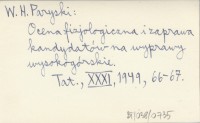 W. H. Paryski:
Ocena fizjologiczna i zaprawa
kandydatów na wyprawy
wysokogórskie.
Tat., XXXI, 1949, 66-67.